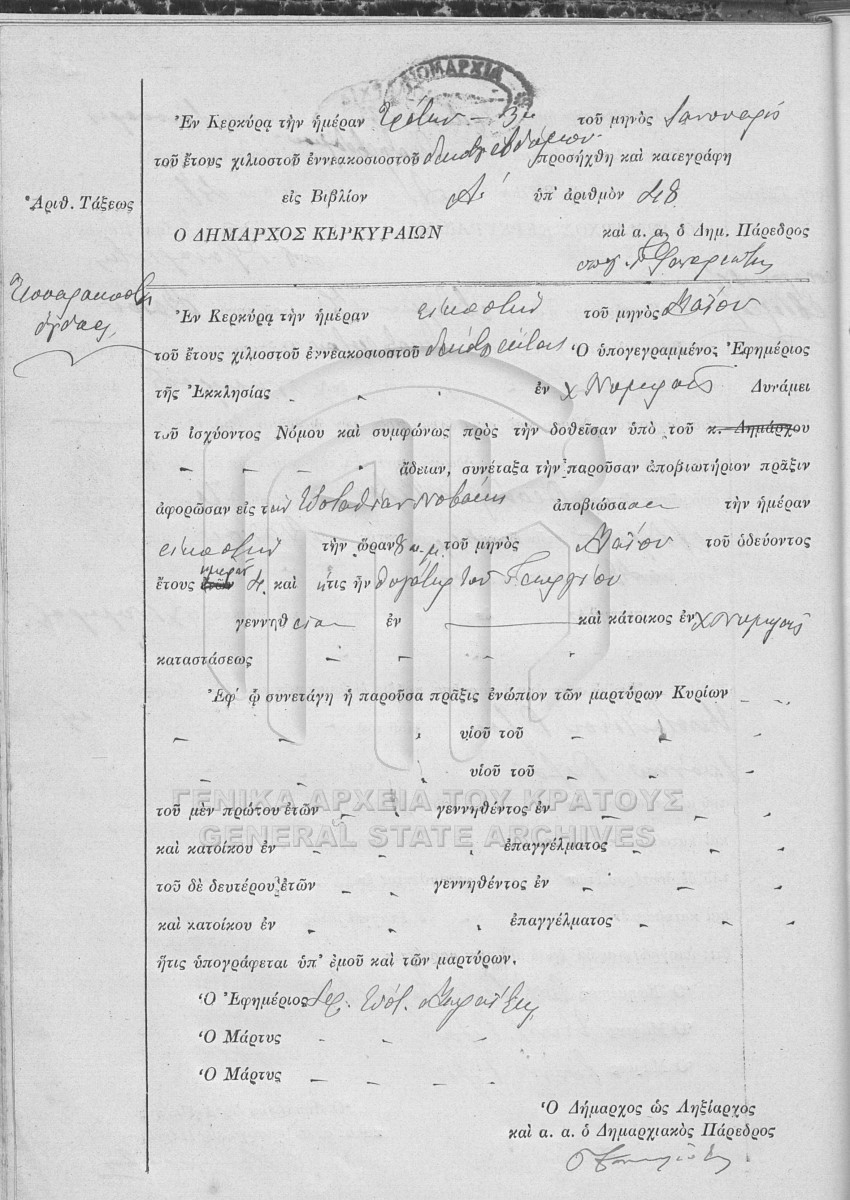 ΝΟΜΑΡΧΙΑ
Ἐν Κερκύρᾳ τὴν ἡμέραν Τρίτην - 3η τοῦ μηνὸς Ἰανουαρίου
τοῦ ἔτους χιλιοστοῦ ἐννεακοσιοστοῦ προσήχθη καὶ κατεγράφη
Ἀριθ. Τάξεως
εἰς Βιβλίον Α' ὑπ' ἀριθμὸν 48
Ο ΔΗΜΑΡΧΟΣ ΚΕΡΚΥΡΑΙΩΝ καὶ α. α. ὁ Δημ. Πάρεδρος
Τεσσαρακοστὴ
ὀγδόη
Ἐν Κερκύρᾳ τὴν ἡμέραν εἰκοστὴν τοῦ μηνὸς Μαΐου
τοῦ ἔτους χιλιοστοῦ ἐννεακοσιοστοῦ Ὁ ὑπογεγραμμένος Ἐφημέριος
τῆς Ἐκκλησίας ἐν Δυνάμει
τοῦ ἰσχύοντος Νόμου καὶ συμφώνως πρὸς τὴν δοθεῖσαν ὑπὸ τοῦ κ. Δημάρχου
ἄδειαν, συνέταξα τὴν παροῦσαν ἀποβιωτήριον πρᾶξιν
ἀφορῶσαν εἰς τὴν ἀποβιώσασαν τὴν ἡμέραν
εἰκοστὴν τὴν ὥραν 8 π.μ. τοῦ μηνὸς Μαΐου τοῦ ὁδεύοντος
ἔτους ἡμερῶν 4 καὶ ἥτις ἦν θυγάτηρ τοῦ Γεωργίου
γεννηθεῖσα ἐν καὶ κάτοικος ἐν
καταστάσεως
Ἐφ' ᾧ συνετάγη ἡ παροῦσα πρᾶξις ἐνώπιον τῶν μαρτύρων Κυρίων
υἱοῦ τοῦ
υἱοῦ τοῦ
ΓΕΝΙΚΑ ΑΡΧΕΙΑ ΤΟΥ ΚΡΑΤΟΥΣ
τοῦ μὲν πρώτου ἐτῶν γεννηθέντος ἐν
GENERAL STATE ARCHIVES
καὶ κατοίκου ἐν ἐπαγγέλματος
τοῦ δὲ δευτέρου ἐτῶν γεννηθέντος ἐν
καὶ κατοίκου ἐν ἐπαγγέλματος
ἥτις ὑπογράφεται ὑπ' ἐμοῦ καὶ τῶν μαρτύρων.
Ὁ Ἐφημέριος
Ὁ Μάρτυς
Ὁ Μάρτυς
Ὁ Δήμαρχος ὡς Ληξίαρχος
καὶ α. α. ὁ Δημαρχιακὸς Πάρεδρος